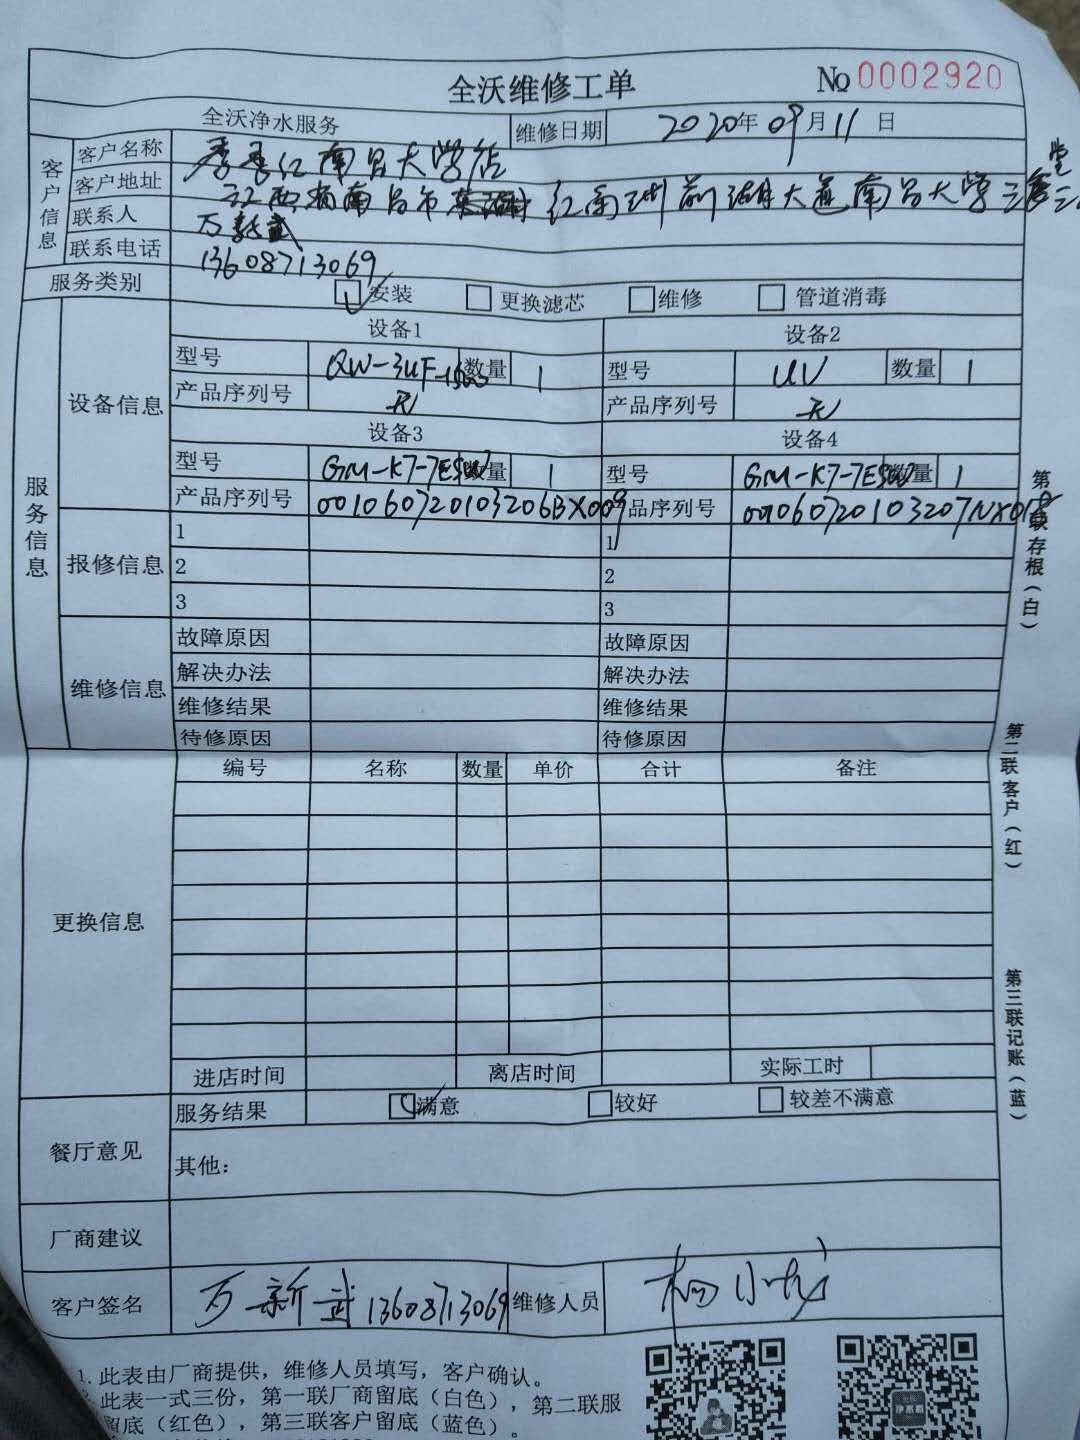 全沃维修工单 № 0002920
全沃净水服务 维修日期 2020年09月11日
客户信息
客户名称 季季红南昌大学店
客户地址 江西省南昌市 红谷滩 前湖大道南昌大学三食堂二
联系人 万新武
联系电话 13608713069
服务类别 安装 更换滤芯 维修 管道消毒
服务信息
设备信息
设备1 设备2
型号 QW-3UF-1500 数量 1 型号 UV 数量 1
产品序列号 无 产品序列号 无
设备3 设备4
型号 GM-K7-7ESW 数量 1 型号 GM-K7-7ESW 数量 1
产品序列号 001060720103206BX009 产品序列号 001060720103207NX018
报修信息
1 1
2 2
3 3
维修信息
故障原因 故障原因
解决办法 解决办法
维修结果 维修结果
待修原因 待修原因
更换信息
编号 名称 数量 单价 合计 备注
进店时间 离店时间 实际工时
餐厅意见
服务结果 满意 较好 较差不满意
其他：
厂商建议
客户签名 万新武 13608713069 维修人员 杨小龙
1. 此表由厂商提供，维修人员填写，客户确认。
此表一式三份，第一联厂商留底（白色），第二联服
留底（红色），第三联客户留底（蓝色）。
第一联存根（白）
第二联客户（红）
第三联记账（蓝）